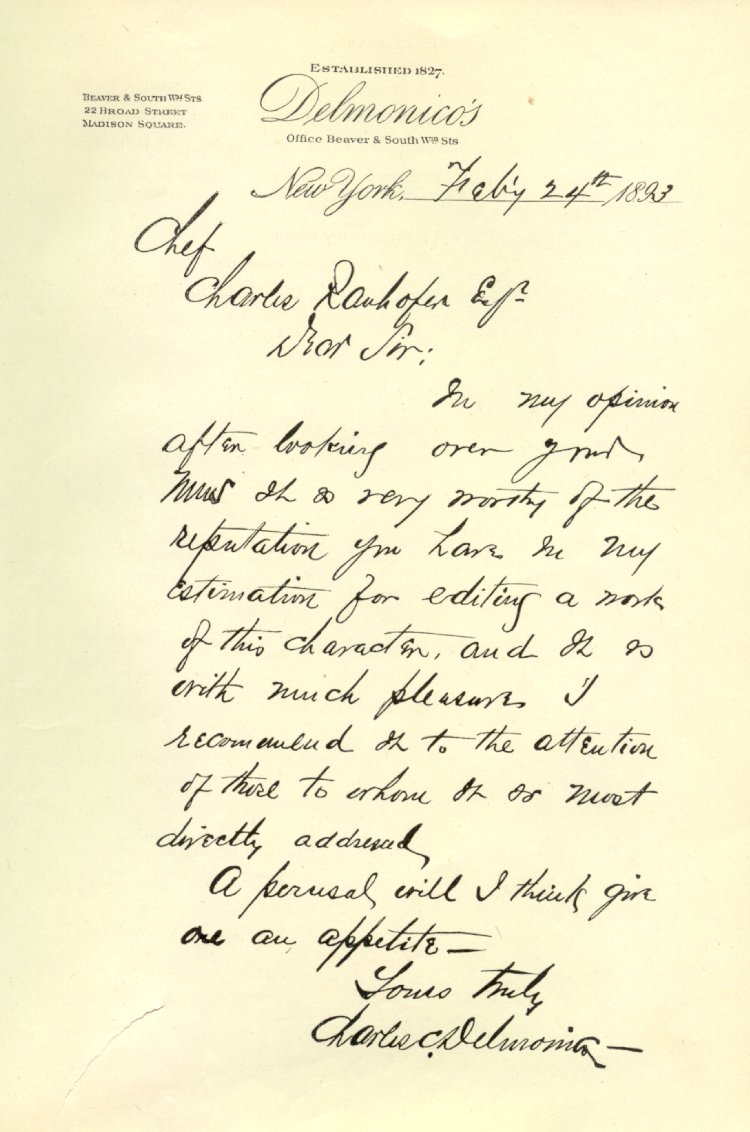 ESTABLISHED 1827.
Delmonico's
Office Beaver & South Wm Sts
BEAVER & SOUTH WM STS
22 BROAD STREET
MADISON SQUARE.
New York, Feb'y 24th 1893
Chef
Charles Ranhofer Esqr
Dear Sir;
In my opinion
after looking over your
it is very worthy of the
reputation you have in my
estimation for editing a work
of this character, and it is
with much pleasure I
recommend it to the attention
of those to whom it is most
directly addressed
A perusal will I think give
one an appetite—
Yours truly
Charles C. Delmonico—